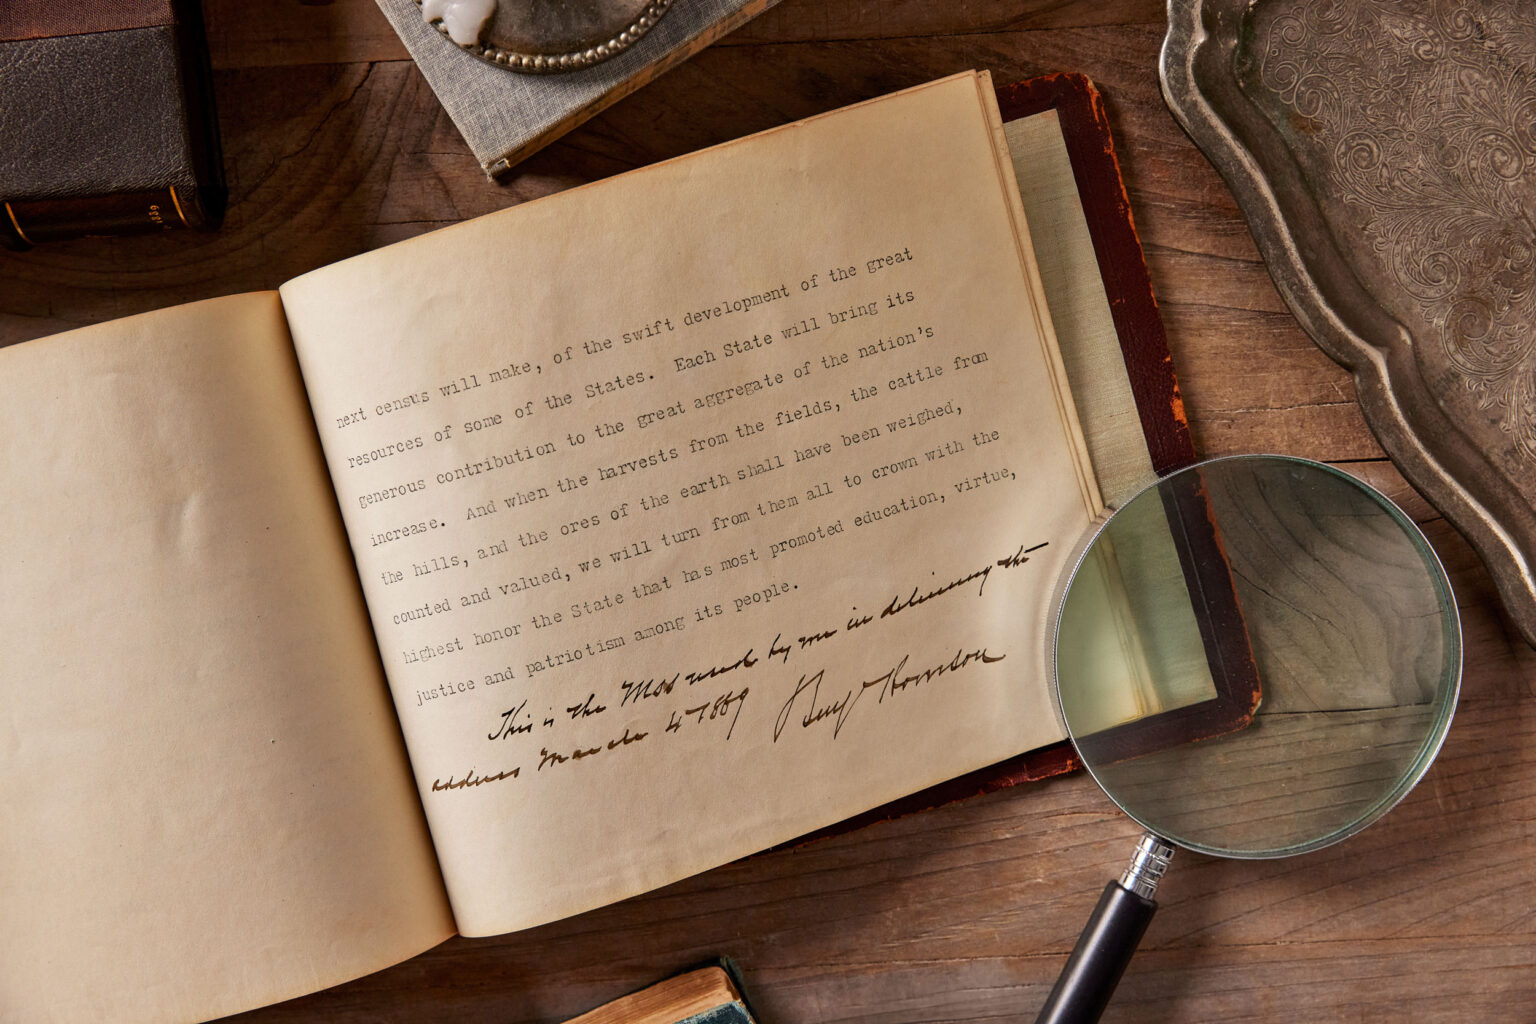 next census will make, of the swift development of the great
resources of some of the States. Each State will bring its
generous contribution to the great aggregate of the nation's
increase. And when the harvests from the fields, the cattle from
the hills, and the ores of the earth shall have been weighed,
counted and valued, we will turn from them all to crown with the
highest honor the State that has most promoted education, virtue,
justice and patriotism among its people.
This is the Mss used by me in delivering the
address March 4 1889 Benj Harrison
1889